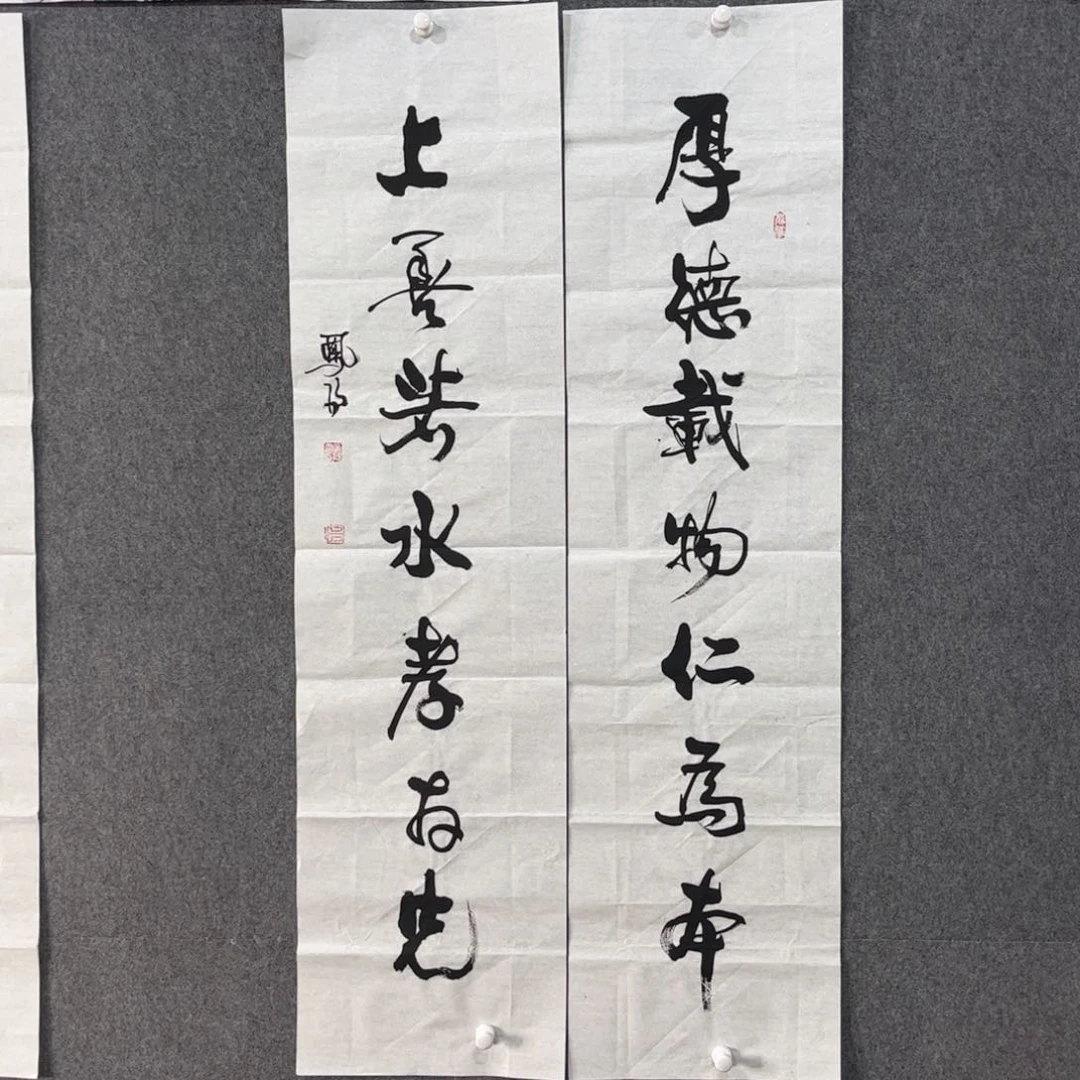 厚德載物仁為本
上善若水孝當先